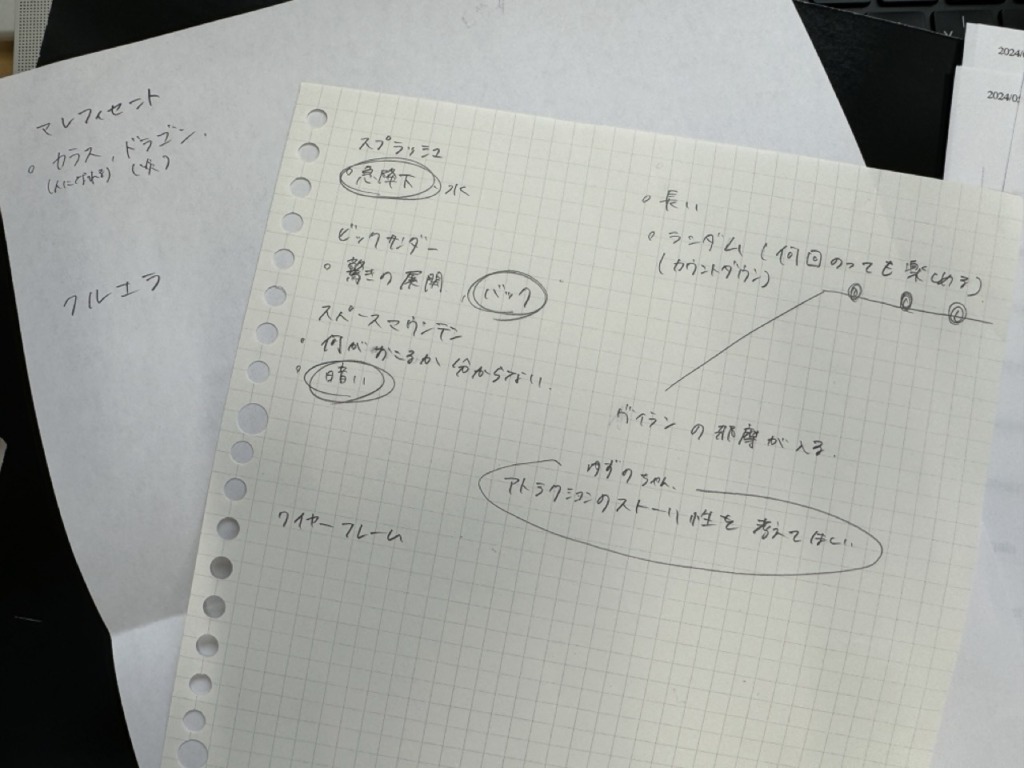 マレフィセント
○ カラス、ドラゴン.
(人にばれる) (火)
クルエラ
スプラッシュ
○急降下、水
ビックサンダー
○ 驚きの展開、バック
スペースマウンテン
・何がおこるか分からない.
○暗い
ワイヤーフレーム
○ 長い
○ ランダム (何回のっても楽しめる)
(カウントダウン)
ヴィランの邪魔が入る.
ゆずのちゃん.
アトラクションのストーリー性を考えてほしい
2024/0
2024/05